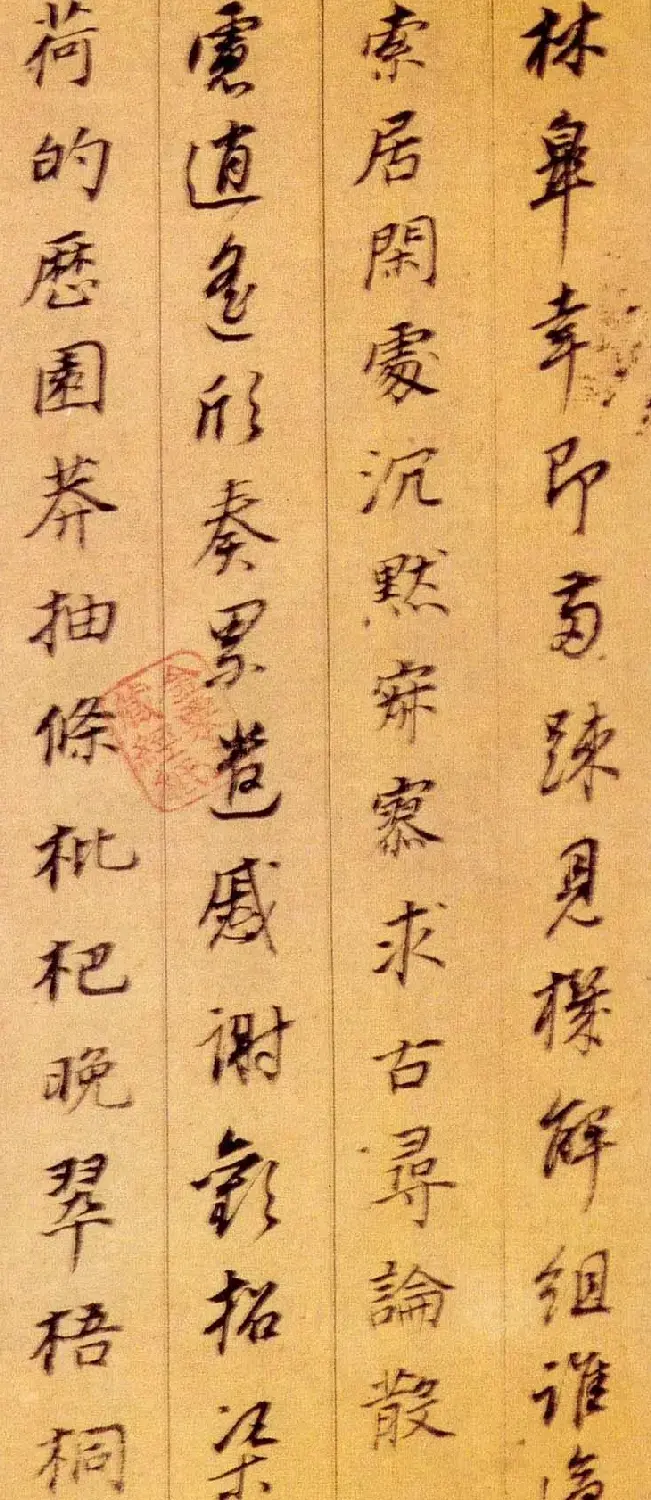 林皐幸即兩踈見機解組誰
索居閑處沉默寂寥求古尋論散
慮逍遙欣奏累遣慼謝歡招渠
荷的歷園莽抽條枇杷晚翠梧桐